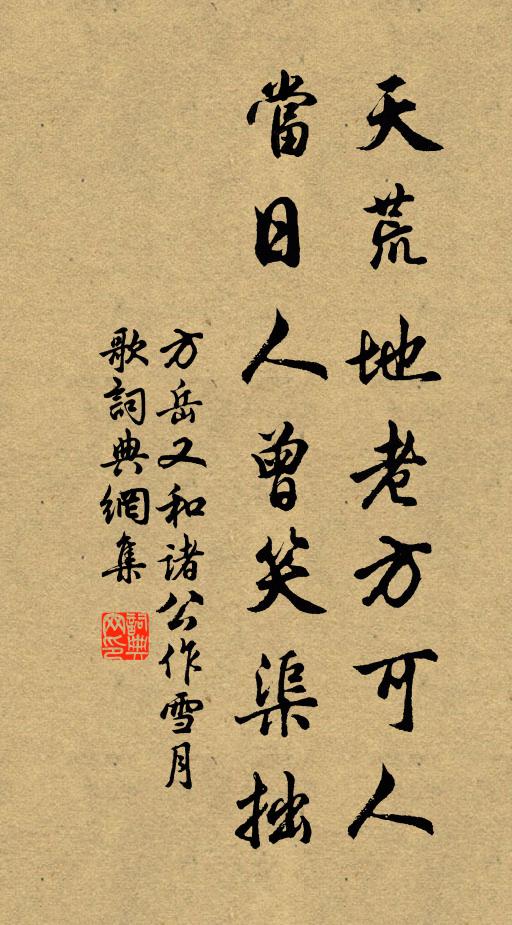 天荒地老方可人
當日人曾笑渠拙
方岳又和诸公作雪月
歌詞典網集
詞典網印